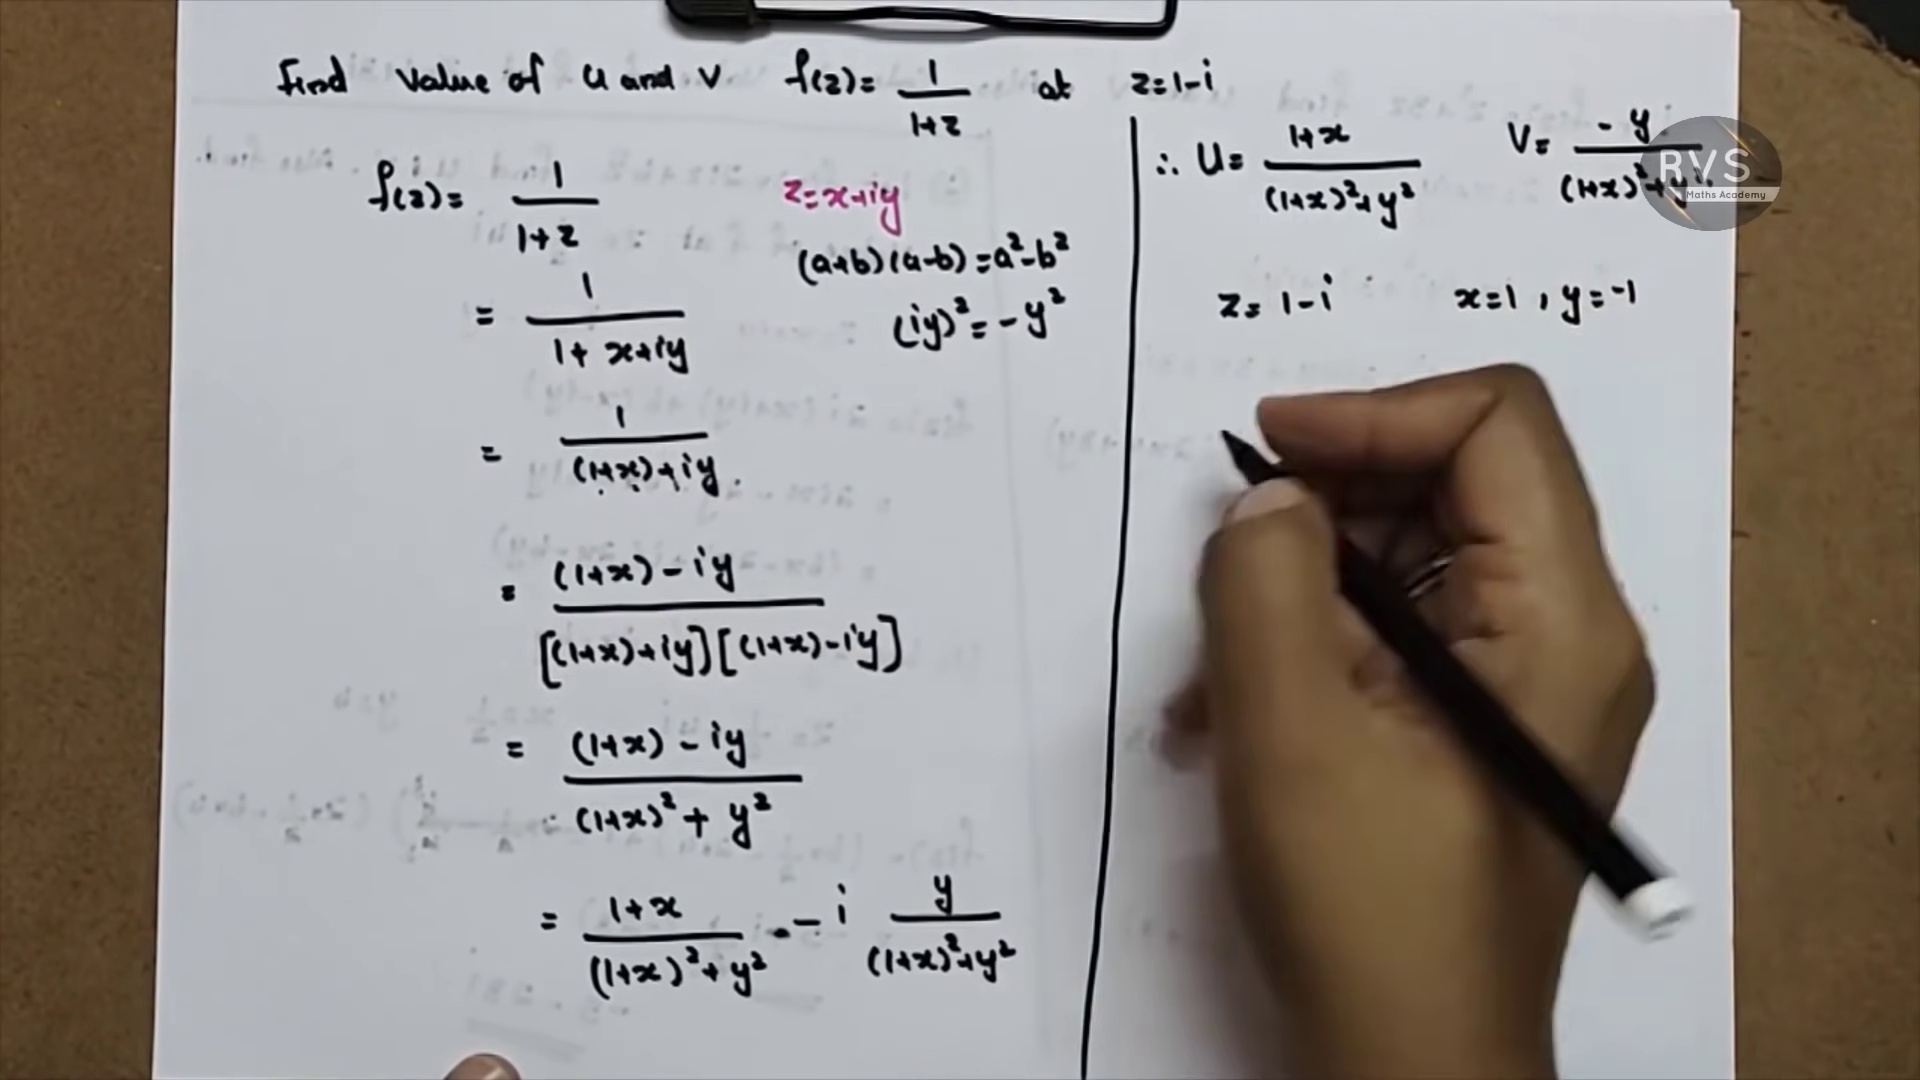 Find value of u and v f(z)= 1/(1+z) at z=1-i
f(z)= 1/(1+z)
z=x+iy
(a+b)(a-b)=a²-b²
= 1/(1+x+iy)
(iy)²=-y²
= 1/((1+x)+iy)
= ((1+x)-iy)/([(1+x)+iy][(1+x)-iy])
= ((1+x)-iy)/((1+x)²+y²)
= (1+x)/((1+x)²+y²) - i y/((1+x)²+y²)
∴ U= (1+x)/((1+x)²+y²) V= -y/((1+x)²+y²)
z= 1-i x=1, y=-1
RVS
Maths Academy